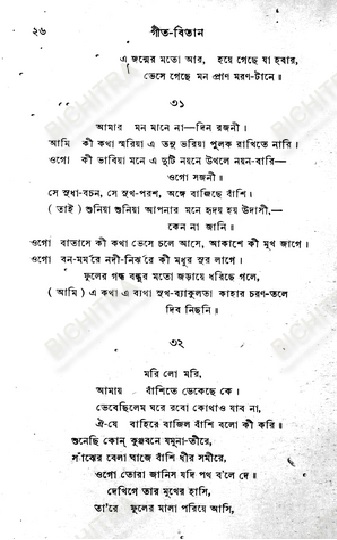 ২৬ গীত-বিতান
এ জন্মের মতো আর, হয়ে গেছে যা হবার,
ভেসে গেছে মন প্রাণ মরণ-টানে॥
৩১
আমার মন মানে না—দিন রজনী।
আমি কী কথা স্মরিয়া এ তনু ভরিয়া পুলক রাখিতে নারি।
ওগো কী ভাবিয়া মনে এ দুটি নয়নে উথলে নয়ন-বারি—
ওগো সজনী॥
সে সুধা-বচন, সে সুখ-পরশ, অঙ্গে বাজিছে বাঁশি।
(তাই) শুনিয়া শুনিয়া আপনার মনে হৃদয় হয় উদাসী,—
কেন না জানি॥
ওগো বাতাসে কী কথা ভেসে চলে আসে, আকাশে কী মুখ জাগে।
ওগো বন-মর্মরে নদী-নির্ঝরে কী মধুর সুর লাগে।
ফুলের গন্ধ বন্ধুর মতো জড়ায়ে ধরিছে গলে,
(আমি) এ কথা এ ব্যথা সুখ-ব্যাকুলতা কাহার চরণ-তলে
দিব নিছনি॥
৩২
মরি লো মরি,
আমায় বাঁশিতে ডেকেছে কে।
ভেবেছিলেম ঘরে রবো কোথাও যাব না,
ঐ-যে বাহিরে বাজিল বাঁশি বলো কী করি॥
শুনেছি কোন্ কুঞ্জবনে যমুনা-তীরে,
সাঁঝের বেলা বাজে বাঁশি ধীর সমীরে,
ওগো তোরা জানিস যদি পথ ব'লে দে॥
দেখিগে তার মুখের হাসি,
তা'রে ফুলের মালা পরিয়ে আসি,
BICHITRA